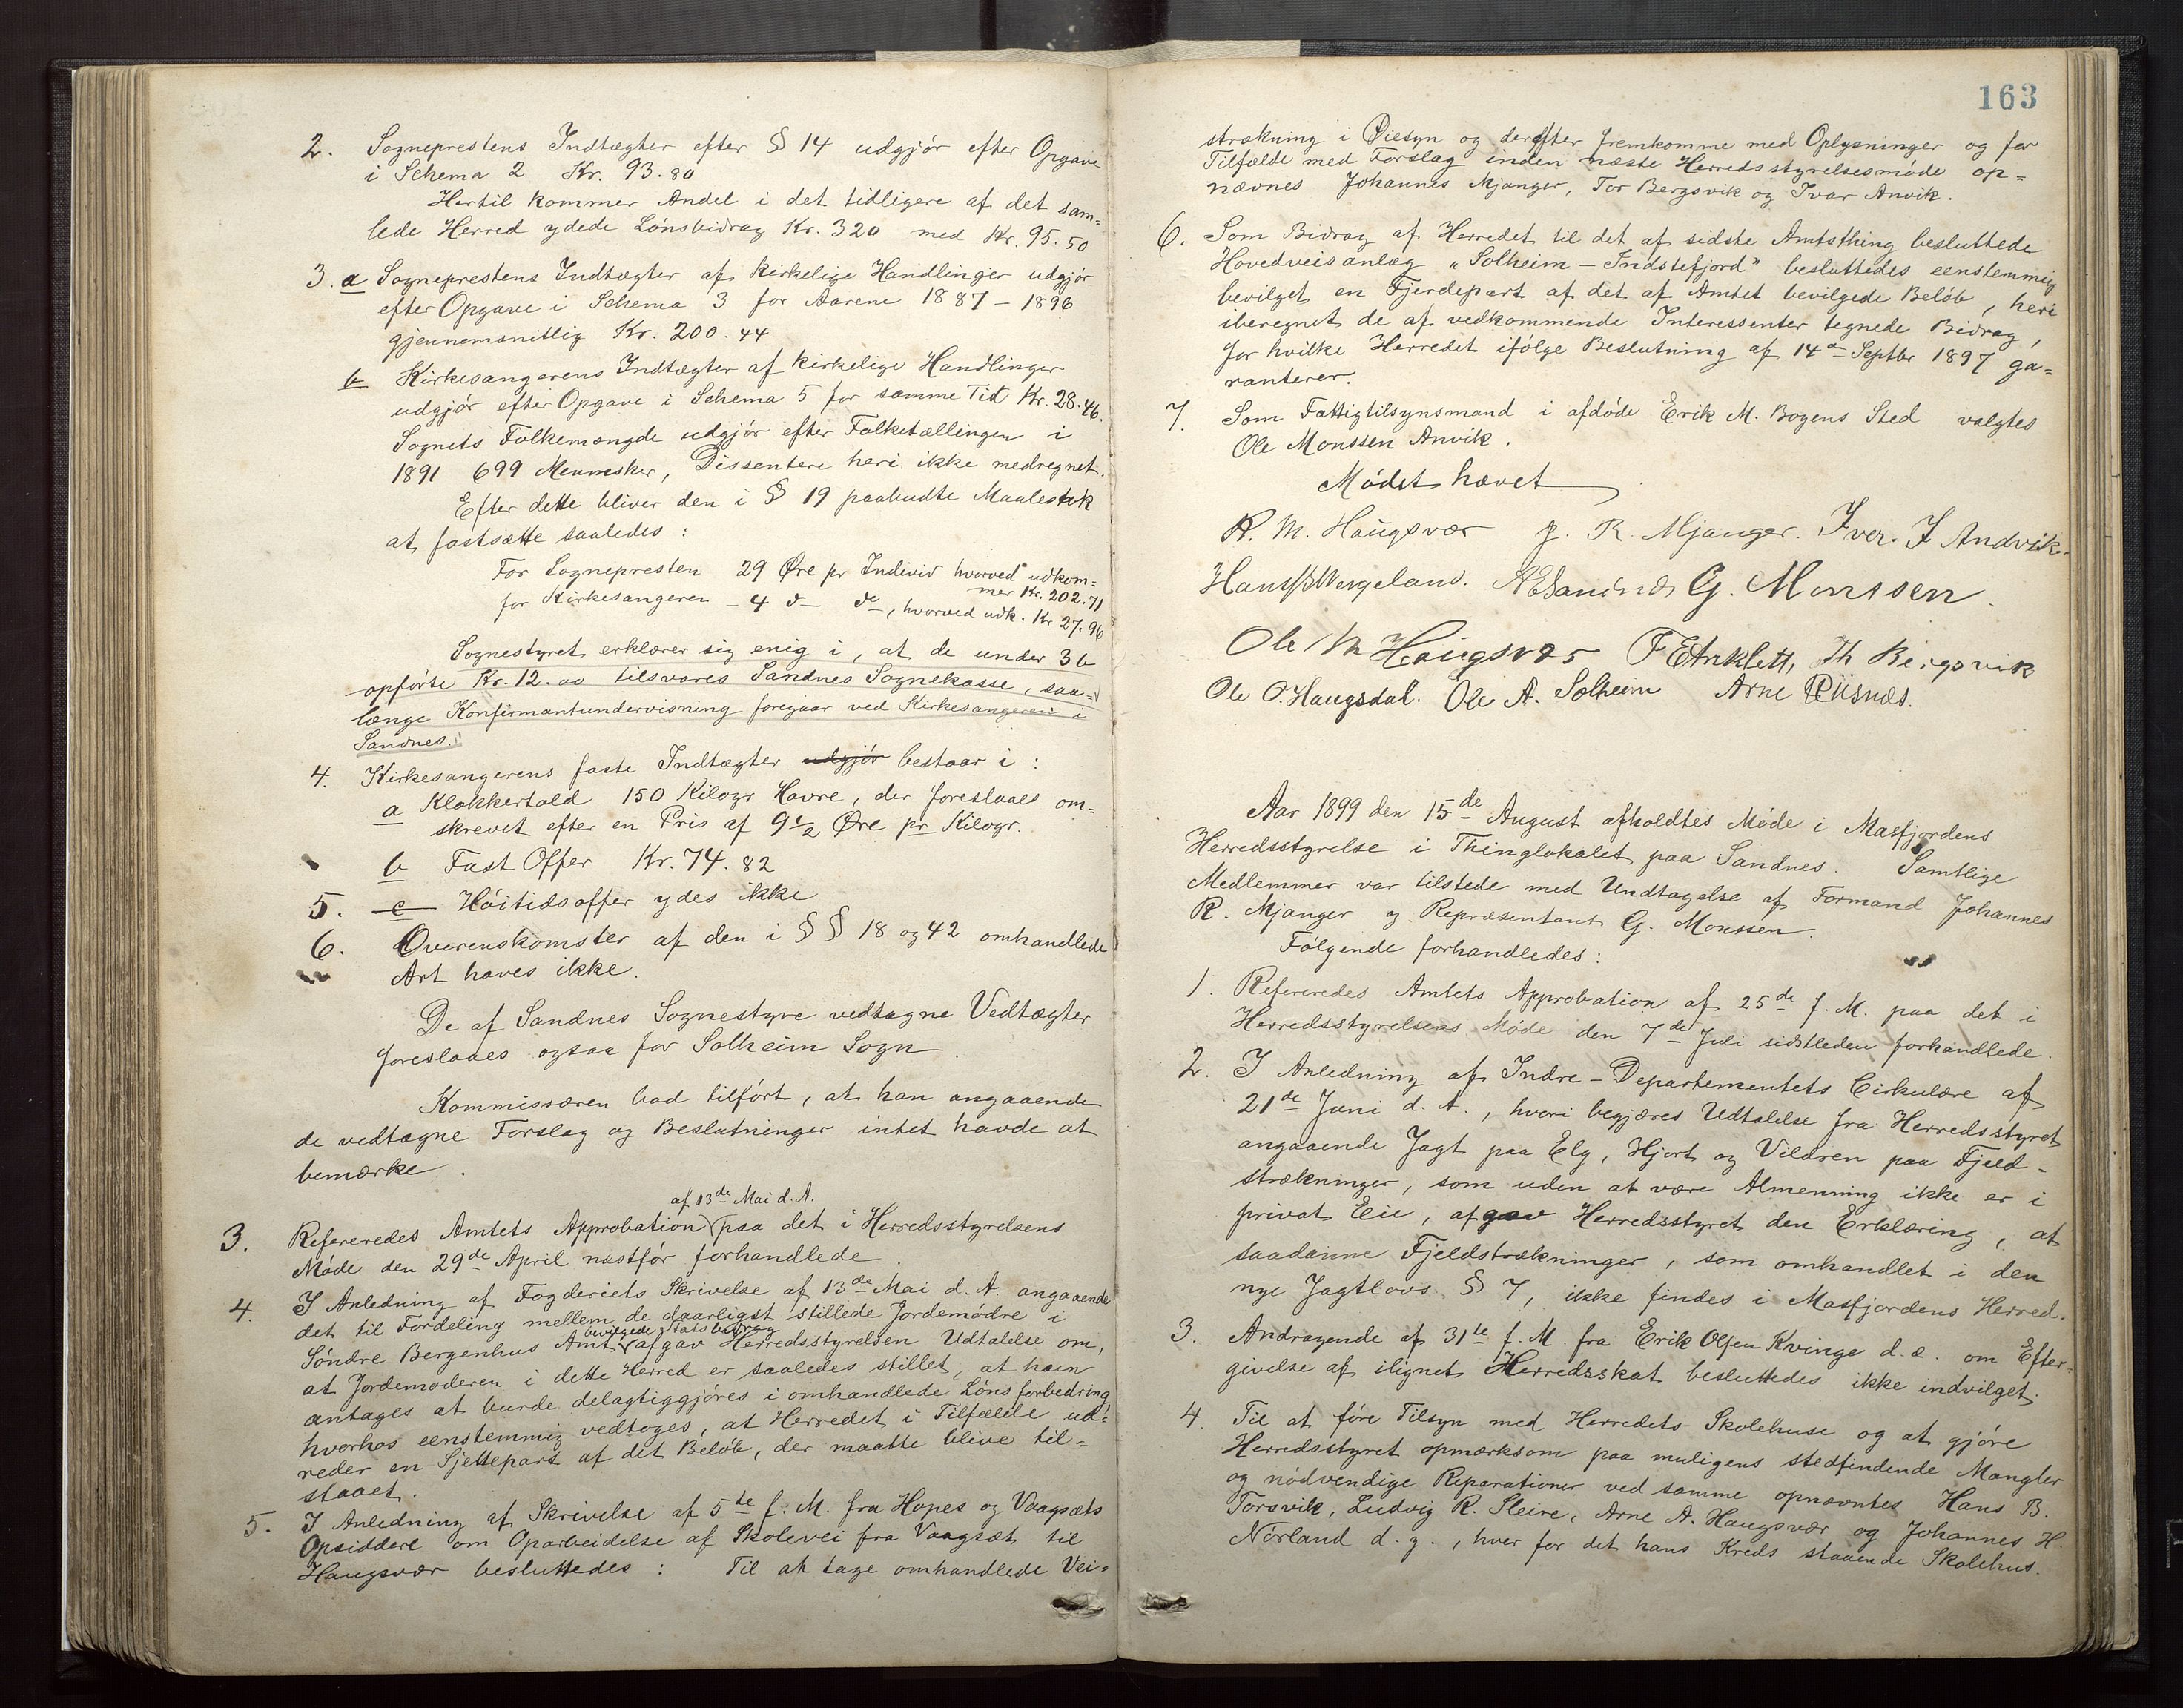 2. Sogneprestens Indtægter efter § 14 udgjör efter Opgave
i Schema 2 Kr. 93.80
Hertil kommer Andel i det tidligere af det sam=
lede Herred ydede Lönsbidrag Kr. 320 med Kr. 95.50
3. a Sogneprestens Indtægter af kirkelige Handlinger udgjör
efter Opgave i Schema 3 for Aarene 1887 - 1896
gjennemsnitlig Kr. 200.44
b Kirkesangerens Indtægter af kirkelige Handlinger
udgjör efter Opgave i Schema 5 for samme Tid Kr. 28.46.
Sognets Folkemængde udgjör efter Folketællingen i
1891 699 Mennesker, Dissentere heri ikke medregnet.
Efter dette bliver den i § 19 paabudte Maalestok
at fastsætte saaledes:
For Sognepresten 29 Øre pr Individ hvorved udkom=
mer Kr. 202.71
for Kirkesangeren - 4 d- de, hvorved udk. Kr 27.96
Sognestyret erklærer sig enig i, at de under 3b
opförte Kr. 12.00 tilsvares Sandnes Sognekasse, saa=
længe Konfirmantundervisning foregaar ved Kirkesangeren i
Sandnes.
4. Kirkesangerens faste Indtægter udgjör bestaar i:
a Klokkertold 150 Kilogr Havre, der foreslaaes om=
skrevet efter en Pris af 9 1/2 Øre pr Kilogr.
b Fast Offer Kr. 74.82
5. c Höitidsoffer ydes ikke
6. Overenskomster af den i §§ 18 og 42 omhandlede
Art haves ikke.
De af Sandnes Sognestyre vedtagne Vedtægter
foreslaaes ogsaa for Solheim Sogn.
Kommissæren bad tilfört, at han angaaende
de vedtagne Forslag og Beslutninger intet havde at
bemærke.
af 13de Mai d. A.
3. Refereredes Amtets Approbation paa det i Herredsstyrelsens
Möde den 29de April næstför forhandlede
4. I Anledning af Fogderiets Skrivelse af 13de Mai d. A. angaaende
det til Fordeling mellem de daarligst stillede Jordemödre i
bevilgede Statsbidrag
Söndre Bergenhus Amt afgav Herredsstyrelsen Udtalelse om,
at Jordemoderen i dette Herred er saaledes stillet, at hun
antages at burde delagtiggjöres i omhandlede Lönsforbedring
hvorhos eenstemmig vedtoges, at Herredet i Tilfælde ud=
reder en Sjettepart af det Belöb, der maatte blive til=
staaet.
5. I Anledning af Skrivelse af 5te f. M. fra Hopes og Vaagsæts
Opsiddere om Oparbeidelse af Skolevei fra Vaagsæt til
Haugsvær besluttedes: Til at tage omhandlede Vei=
163
strækning i Øiesyn og derefter fremkomme med Oplysninger og for
Tilfælde med Forslag inden næste Herredsstyrelsesmöde op=
nævnes Johannes Mjanger, Tor Bergsvik og Ivar Anvik.
6. Som Bidrag af Herredet til det af sidste Amtsthing besluttede
Hovedveisanlæg "Solheim - Indstefjord" besluttedes eenstemmig
bevilget en Fjerdepart af det af Amtet bevilgede Belöb, heri
iberegnet de af vedkommende Interessenter tegnede Bidrag,
for hvilke Herredet ifölge Beslutning af 14de Septbr 1897 ga=
ranterer.
7. Som Fattigtilsynsmand i afdöde Erik M. Bogens Sted valgtes
Ole Monssen Anvik.
Mödet hævet
R. M. Haugsvær J. R. Mjanger. Iver. I Andvik.
Hans Wergeland. G. Monssen.
Ole M Haugsvær Th Bergsvik
Ole O. Haugsdal. Ole A. Solheim Arne Riisnæs.
Aar 1899 den 15de August afholdtes Möde i Masfjordens
Herredsstyrelse i Thinglokalet paa Sandnes. Samtlige
Medlemmer var tilstede med Undtagelse af Formand Johannes
R. Mjanger og Repræsentant G. Monssen.
Fölgende forhandledes:
1. Refereredes Amtets Approbation af 25de f. M. paa det i
Herredsstyrelsens Möde den 7de Juli sidstleden forhandlede.
2. I Anledning af Indre-Departementets Cirkulære af
21de Juni d. A., hvori begjæres Udtalelse fra Herredsstyret
angaaende Jagt paa Elg, Hjort og Vildren paa Fjeld-
strækninger, som uden at være Almenning ikke er i
privat Eie, afgav Herredsstyret den Erklæring, at
saadanne Fjeldstrækninger, som omhandlet i den
nye Jagtlovs § 7, ikke findes i Masfjordens Herred.
3. Andragende af 31te f. M. fra Erik Olsen Kvinge d. æ. om Efter=
givelse af ilignet Herredsskat besluttedes ikke indvilget.
4 Til at före Tilsyn med Herredets Skolehuse og at gjöre
Herredsstyret opmærksom paa muligens stedfindende Mangler
og nödvendige Reparationer ved samme opnævntes Hans B.
Torsvik, Ludvig R. Sleire, Arne A. Haugsvær og Johannes H.
Nörland d. y., hver for det hans Kreds staaende Skolehus.